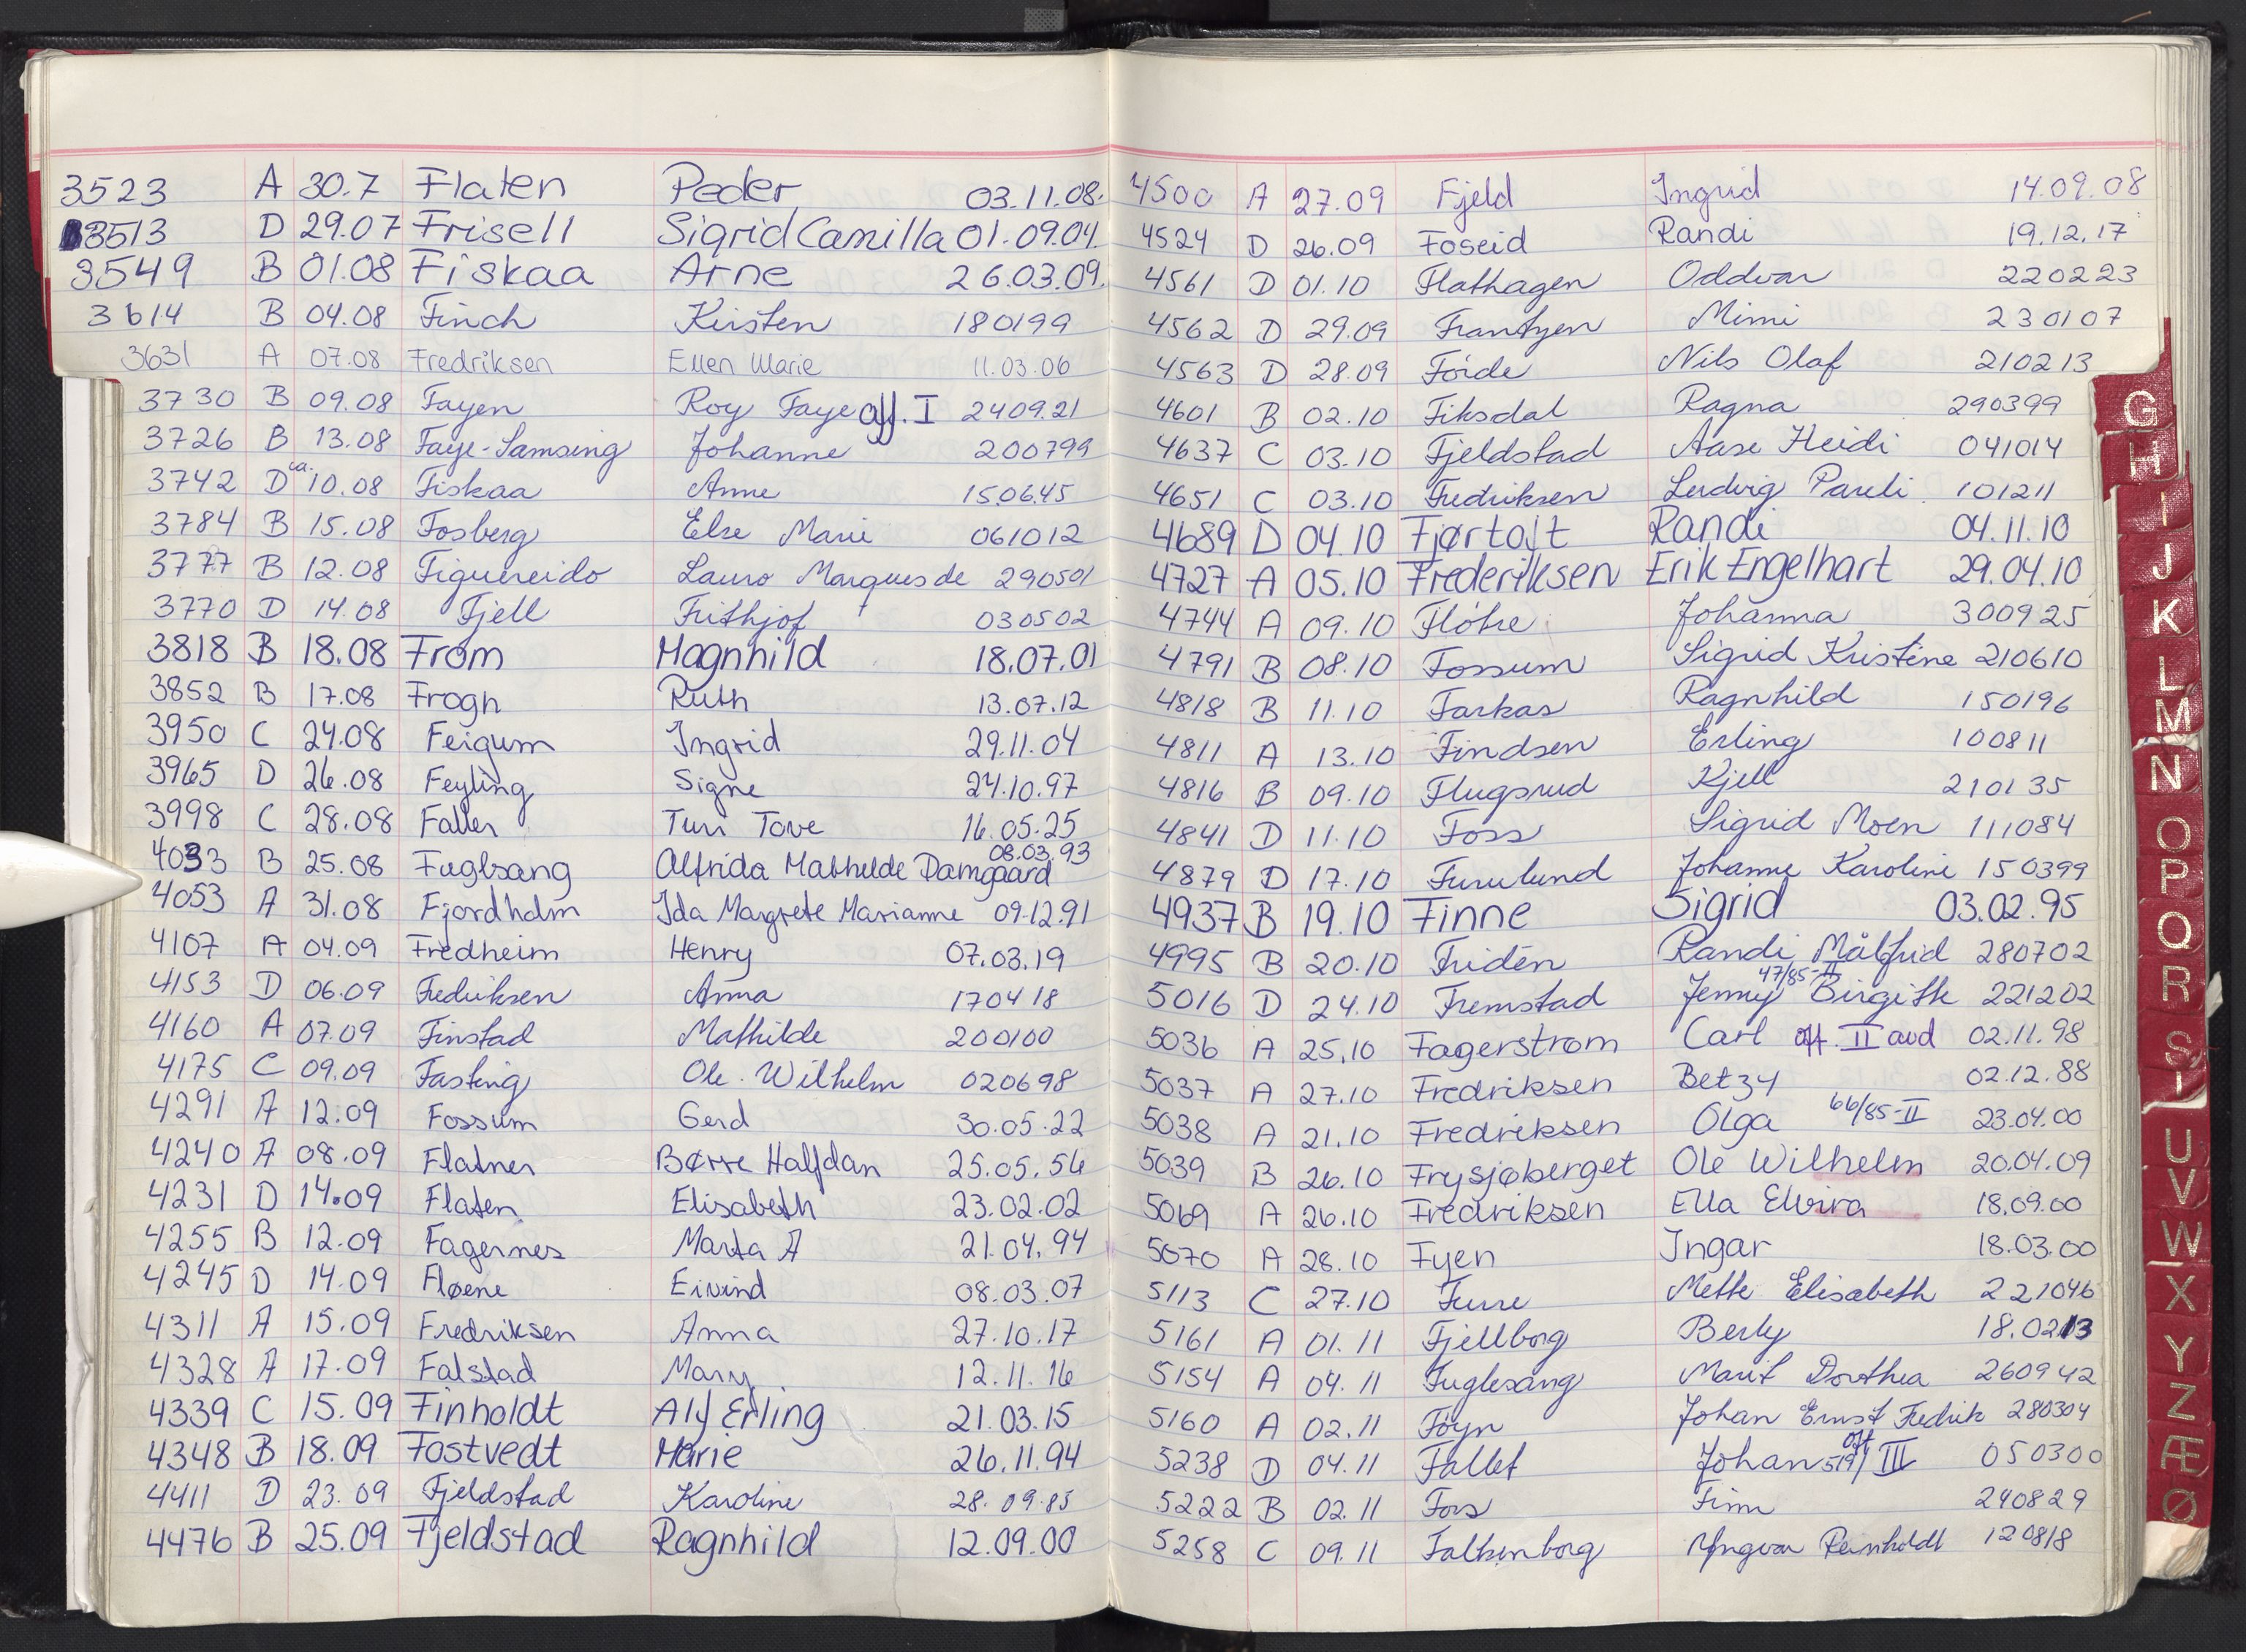 3523 A 30.7 Flaten Peder 03.11.08.
3513 D 29.07 Frisell Sigrid Camilla 01.09.04.
3549 B 01.08 Fiskaa Arne 26.03.09.
3614 B 04.08 Finch Kirsten 180199
3631 A 07.08 Fredriksen Ellen Marie 11.03.06
3730 B 09.08 Fayen Roy Faye off. I 2409.21
3726 B 13.08 Faye-Samsing Johanne 200799
3742 D ca. 10.08 Fiskaa Anne 15.06.45
3784 B 15.08 Fosberg Else Marie 061012
3777 B 12.08 Figuereido Lauro Marques de 290501
3770 D 14.08 Fjell Frithjof 030502
3818 B 18.08 From Magnhild 18.07.01
3852 B 17.08 Frogn Ruth 13.07.12
3950 C 24.08 Feigum Ingrid 29.11.04
3965 D 26.08 Feyling Signe 24.10.97
3998 C 28.08 Faller Turi Tove 16.05.25
4033 B 25.08 Fuglsang Alfrida Mathilde Damgaard 08.03.93
4053 A 31.08 Fjordholm Ida Margrete Marianne 09.12.91
4107 A 04.09 Fredheim Henry 07.03.19
4153 D 06.09 Fredriksen Anna 170418
4160 A 07.09 Finstad Mathilde 200100
4175 C 09.09 Fasting Ole. Wilhelm 020698
4291 A 12.09 Fossum Gerd 30.05.22
4240 A 08.09 Flatner Børre Halfdan 25.05.56
4231 D 14.09 Flaten Elisabeth 23.02.02
4255 B 12.09 Fagernes Marta A 21.04.94
4245 D 14.09 Fløene Eivind 08.03.07
4311 A 15.09 Fredriksen Anna 27.10.17
4328 A 17.09 Falstad Mary 12.11.16
4339 C 15.09 Finholdt Alf Erling 21.03.15
4348 B 18.09 Fostvedt Marie 26.11.94
4411 D 23.09 Fjeldstad Karoline 28.09.85
4476 B 25.09 Fjeldstad Ragnhild 12.09.00
4500 A 27.09 Fjeld Ingrid 14.09.08
4524 D 26.09 Foseid Randi 19.12.17
4561 D 01.10 Flathagen Oddvar 220223
4562 D 29.09 Frantzen Mimi 230107
4563 D 28.09 Förde Nils Olaf 210213
4601 B 02.10 Fiksdal Ragna 290399
4637 C 03.10 Fjeldstad Aase Heidi 041014
4651 C 03.10 Fredriksen Ludvig Pareli 101211
4689 D 04.10 Fjørtoft Randi 04.11.10
4727 A 05.10 Frederiksen Erik Engelhart 29.04.10
4744 A 09.10 Flötre Johanna 300925
4791 B 08.10 Fossum Sigrid Kristine 210610
4818 B 11.10 Farkas Ragnhild 150196
4811 A 13.10 Findsen Erling 100811
4816 B 09.10 Flugsrud Kjell 210135
4841 D 11.10 Foss Sigrid Moen 111084
4879 D 17.10 Furulund Johanne Karoline 150399
4937 B 19.10 Finne Sigrid 03.02.95
4995 B 20.10 Fridén Randi Målfrid 280702
47/85-II
5016 D 24.10 Fremstad Jenny Birgitte 221202
5036 A 25.10 Fagerstrøm Carl off. II avd 02.11.98
5037 A 27.10 Fredriksen Betzy 02.12.88
5038 A 21.10 Fredriksen Olga 66/85-II 23.04.00
5039 B 26.10 Frysjøberget Ole Wilhelm 20.04.09
5069 A 26.10 Fredriksen Ella Elvira 18.09.00
5070 A 28.10 Fyen Ingar 18.03.00
5113 C 27.10 Furre Mette Elisabeth 221046
5161 A 01.11 Fjellborg Berly 18.0213
5154 A 04.11 Fuglesang Marit Dorthea 260942
5160 A 02.11 Föyn Johan Ernst Fredrik 280304
5238 D 04.11 Fallet Johan off III 050300
5222 B 02.11 Fors Finn 240829
5258 C 09.11 Falkenborg Yngvar Reinholdt 120818
G
H
I
J
K
L
M
N
O
P
Q
R
S
U
V
W
X
Y
Z
Æ
Ø